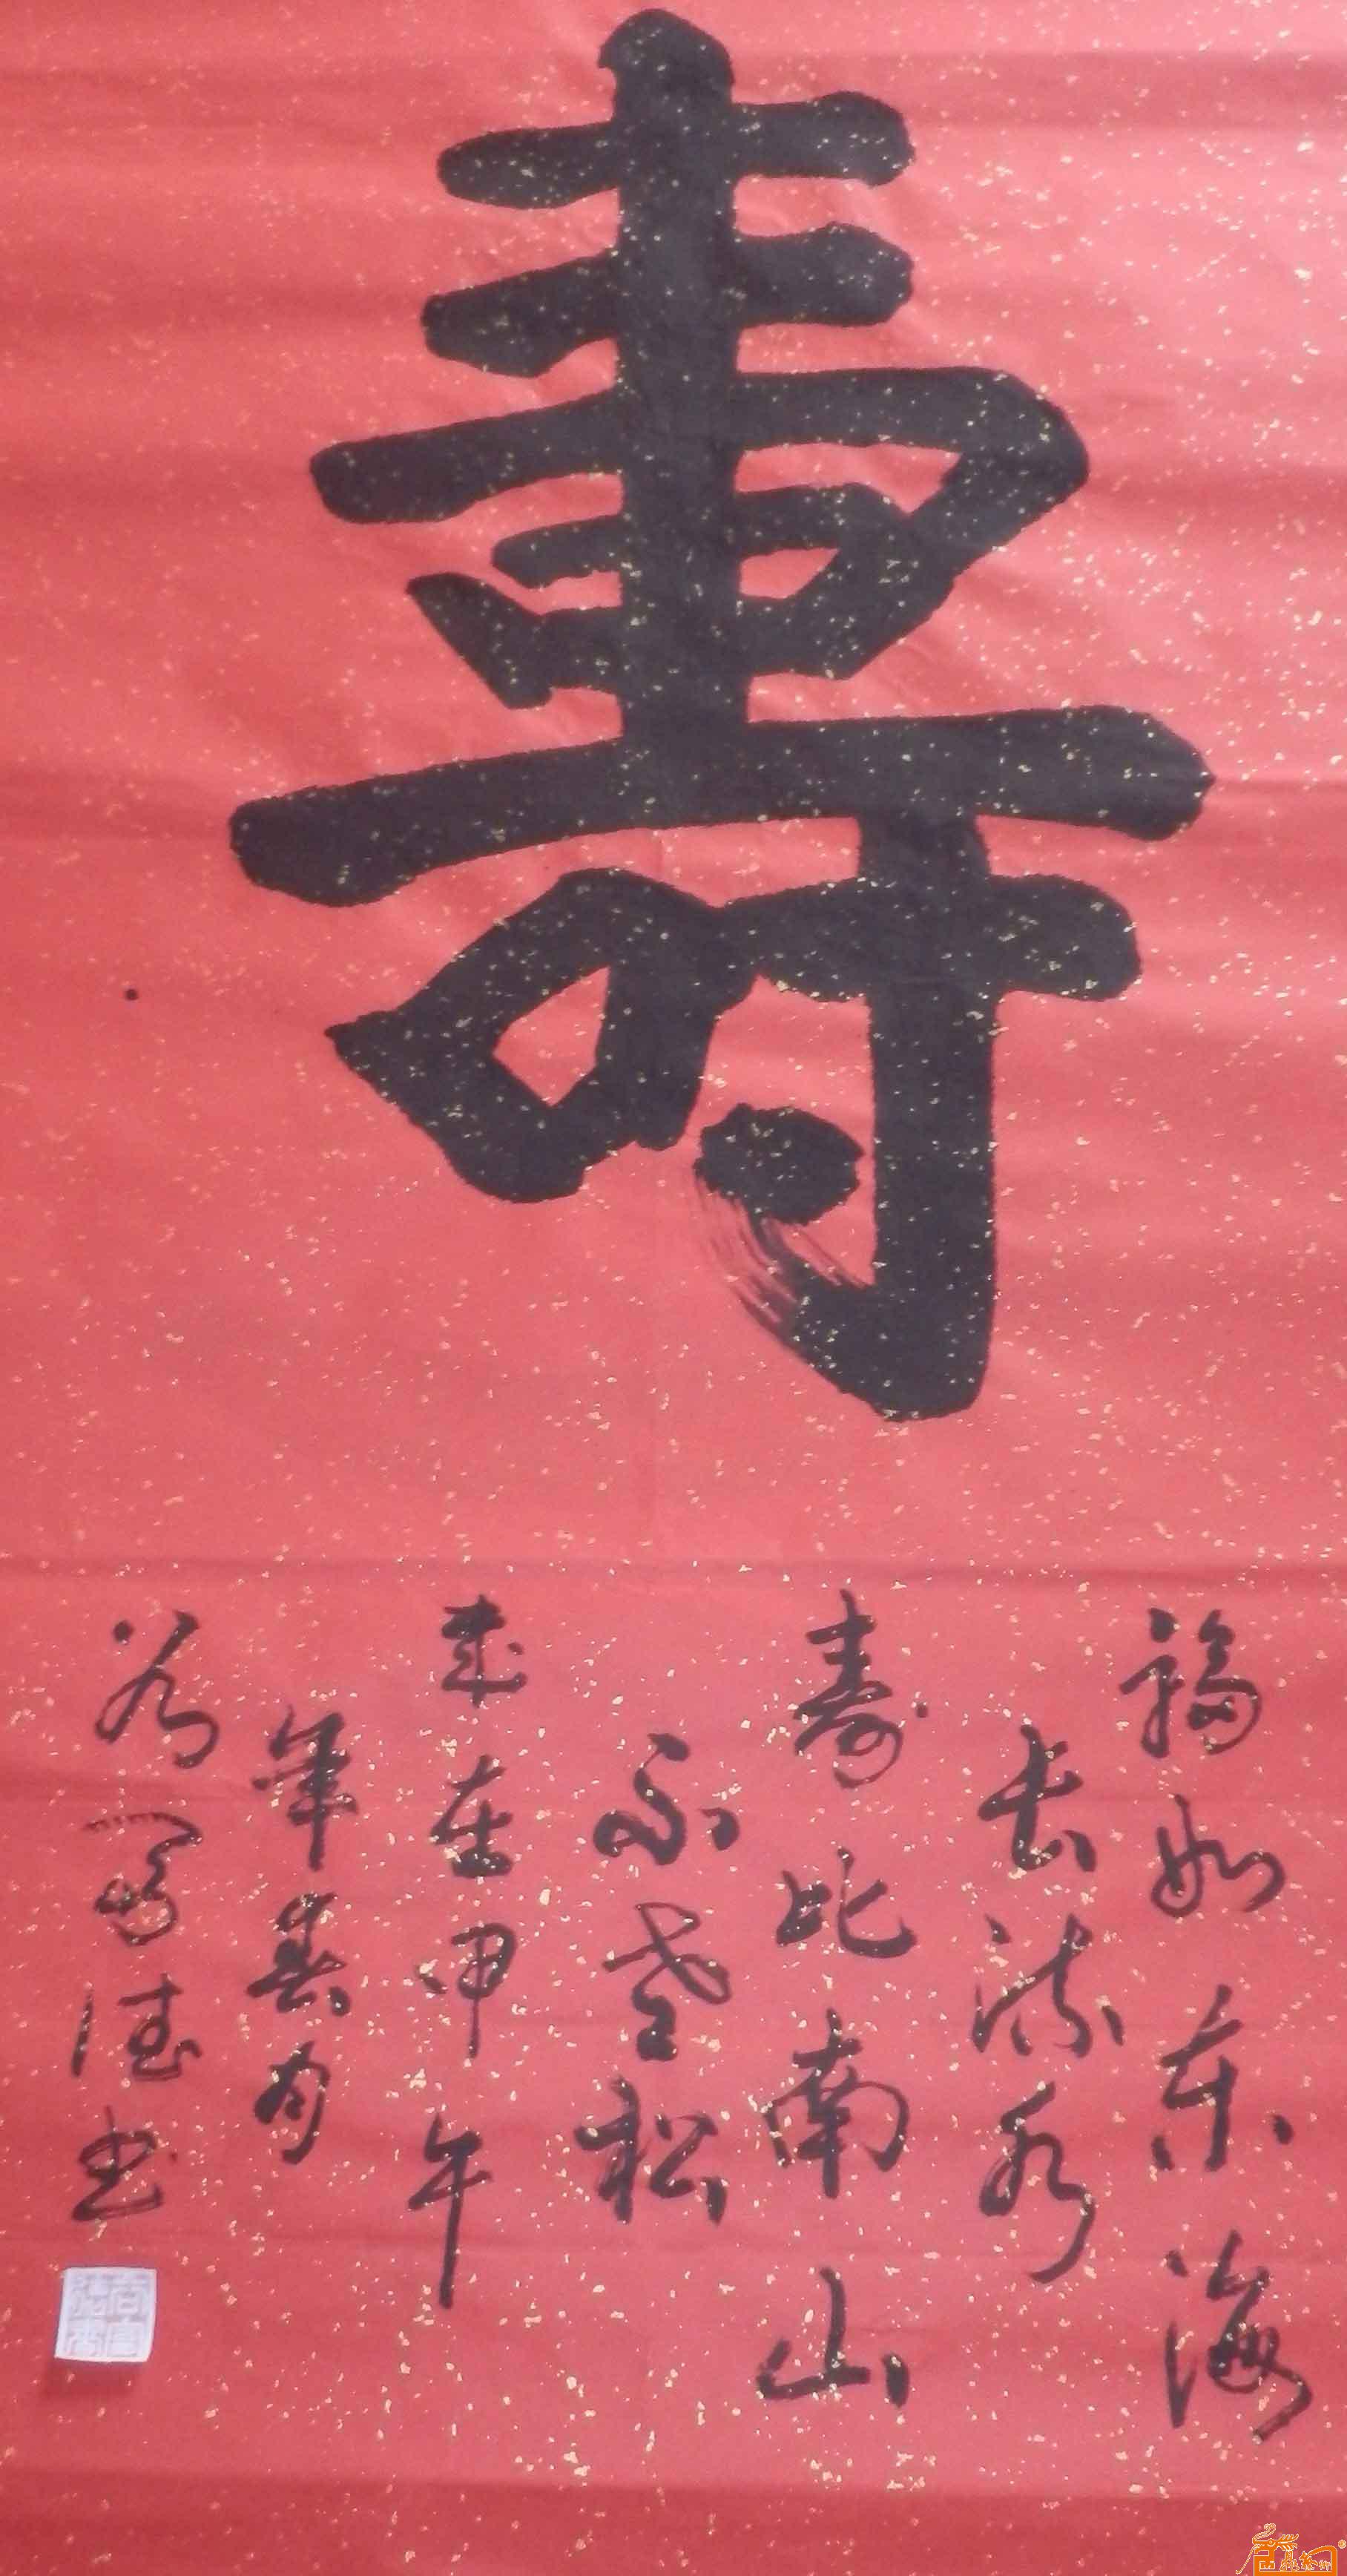 壽
福如东海
长流水
寿比南山
不老松
岁在甲午
年春月
书